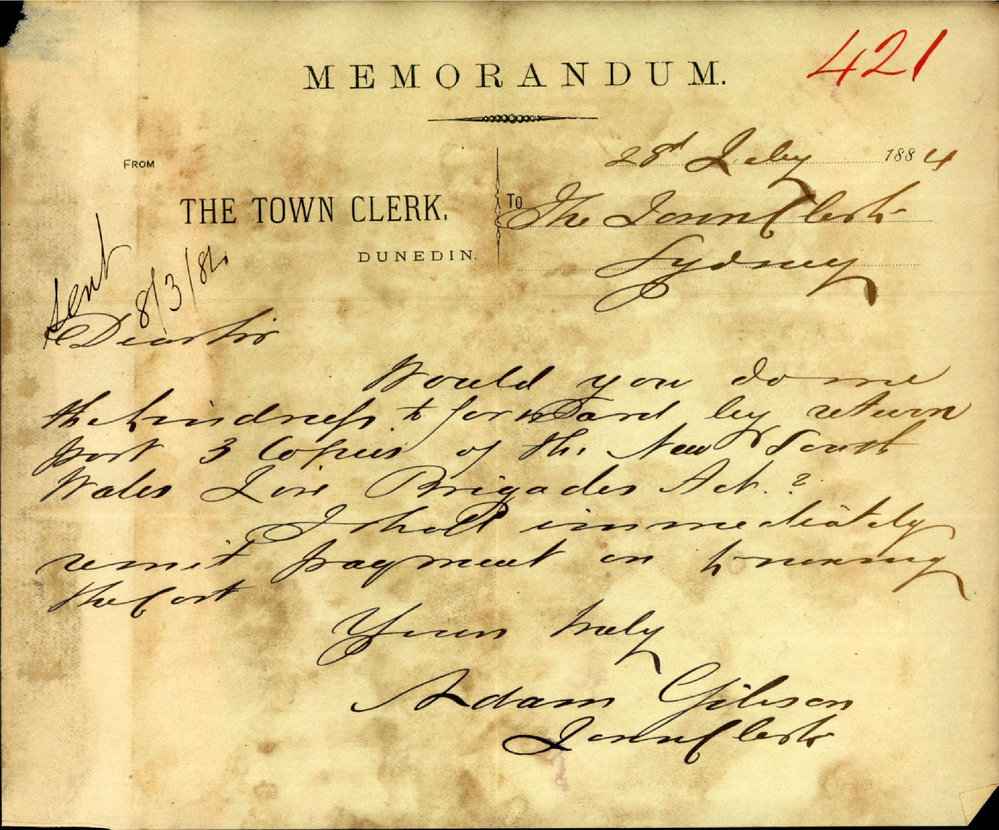 421
MEMORANDUM.
28th Feby 1884
FROM
THE TOWN CLERK,
DUNEDIN.
To The Town Clerk
Sydney
Sent
8/3/84
Dear Sir
Would you do me
the kindness to forward by return
post 3 Copies of the New South
Wales Fire Brigades Act?
I shall immediately
remit payment on knowing
the Cost
Yours truly
Adam Gibson
Town Clerk